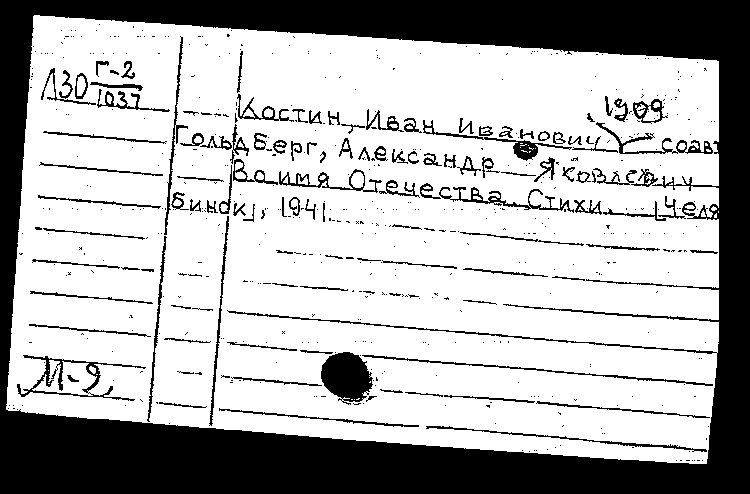 Л30 Г-2
1037
1909
Костин, Иван Иванович соавт
Гольдберг, Александр Яковлевич
Во имя Отечества. Стихи. [Челя
бинск], 1941
М-я,